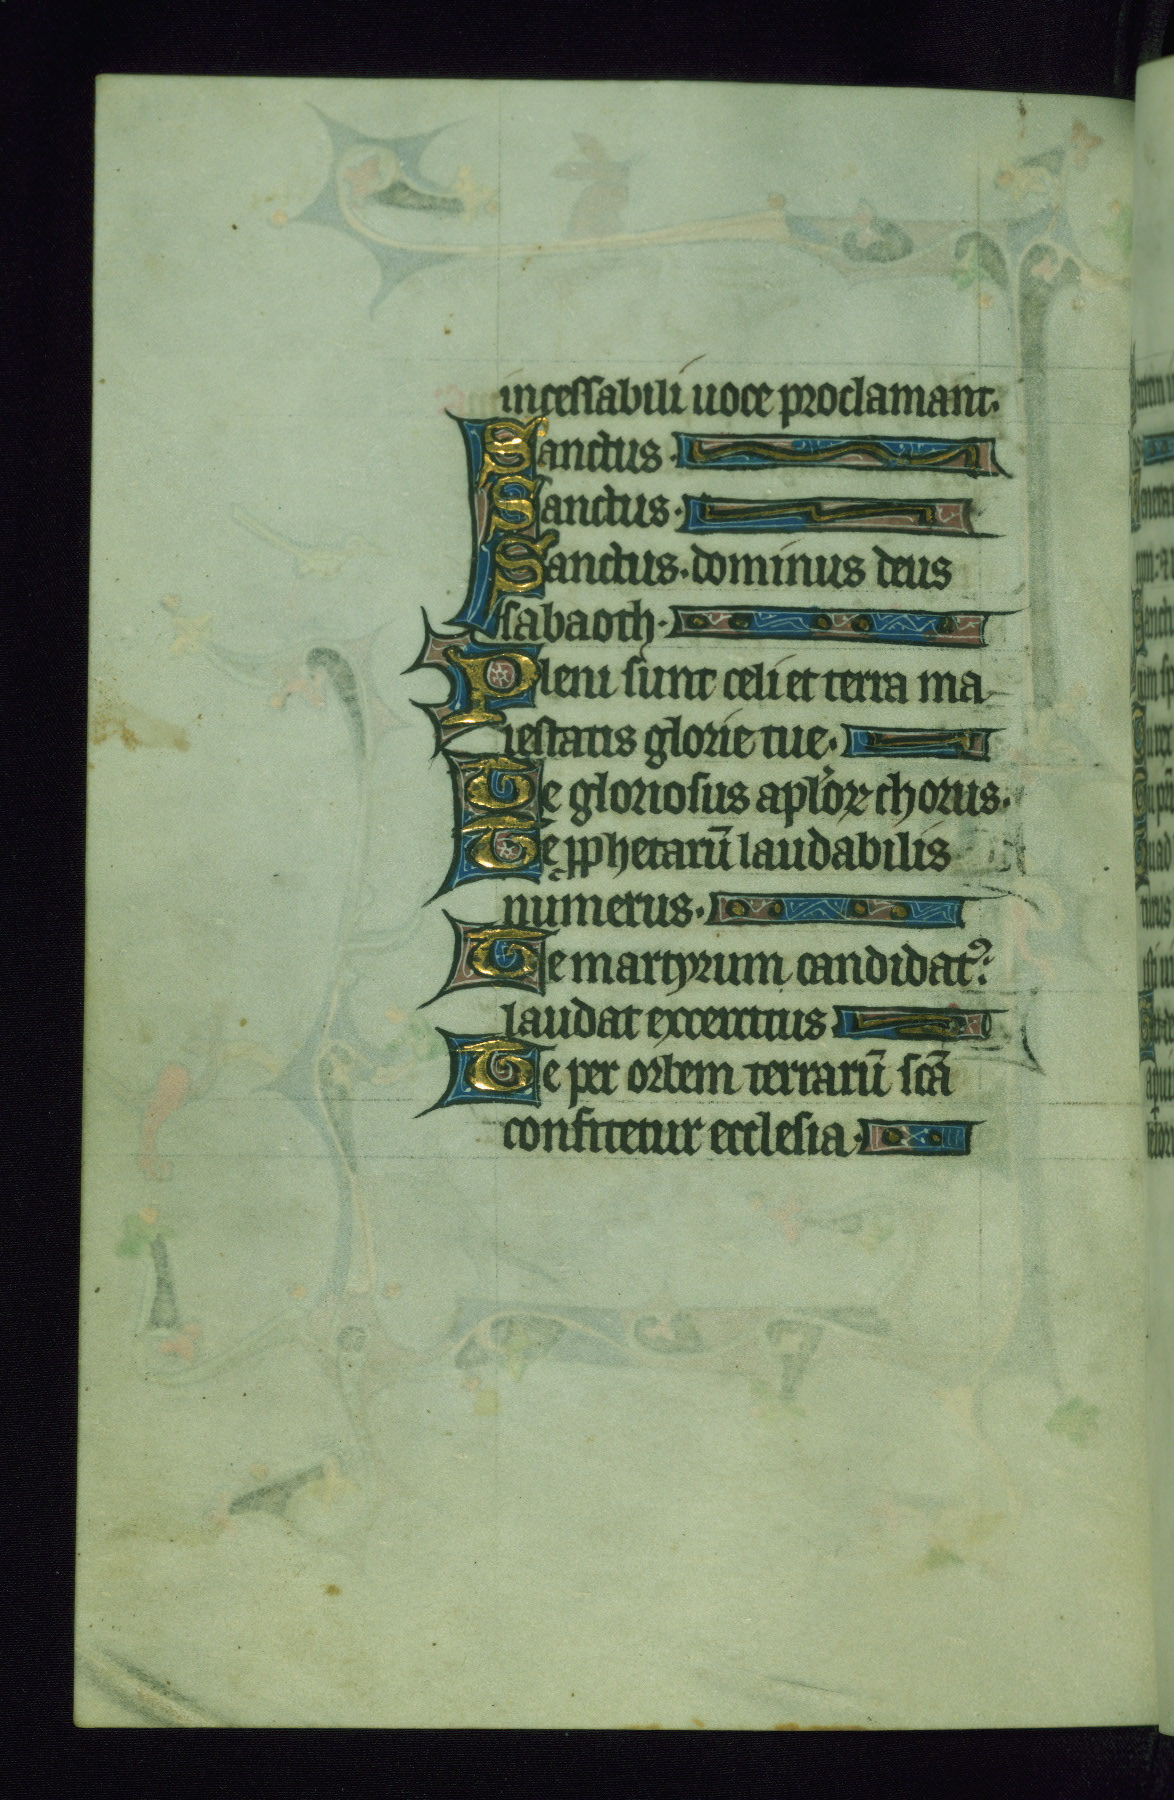 incessabili uoce proclamant.
Sanctus.
Sanctus.
Sanctus. dominus deus
sabaoth.
Pleni sunt celi et terra ma
iestatis glorie tue.
Te gloriosus aplꝝ chorus.
Te ꝓphetarū laudabilis
numerus.
Te martyrum candidatꝰ.
laudat excercitus
Te per orbem terrarū scā
confitetur ecclesia.